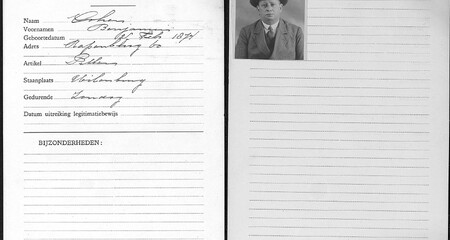 Naam Cohen
Voornamen Benjamin
Geboortedatum 26 Feb 1874
Adres
Artikel
Staanplaats Uilenburg
Gedurende Zondag
Datum uitreiking legitimatiebewijs
BIJZONDERHEDEN: